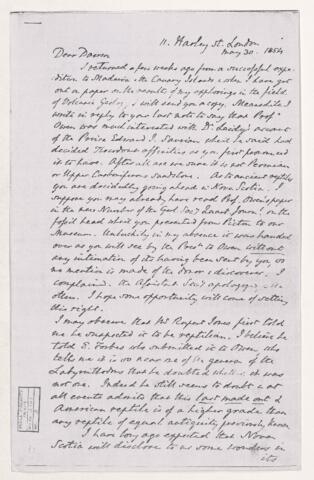 11. Harley St. London
May 30. 1854
Dear Dawson
I returned a few weeks ago from a successful expe
dition to Madeira & the Canary Islands & when I have got
out a paper on the results of my explorings in the field
of Volcanic Geology I will send you a copy. Meanwhile I
write in reply to your last note to say that Prof.
Owen was much interested with Dr. Leidy's account
of the Prince Edward I. Saurian which he said had
decided Thecodon affinities as you first pronounced
it to have. After all are we sure it is not Permian
or Upper Carboniferous sandstone. As to ancient reptiles
you are decidedly going ahead in Nova Scotia. I
suppose you may already have read Prof. Owen's paper
in the new Number of the Geol. Soc.'s Quart. Journ. on the
fossil head which you presented from Pictou to our
Museum. Unluckily in my absence it was handed
over as you will see by the Proc. to Owen without
any intimation of its having been sent by you so
no mention is made of the donor & discoverer. I
complained. The Assistant Secy apologises &
others. I hope some opportunity will come of setting
this right.
I may observe that Mr Rupert Jones first told
me he suspected it to be reptilian. I believe he
told E. Forbes who submitted it to Owen who
tells me it is so near one of the genera of the
Labyrinthodons that he doubted whether it was
not one. Indeed he still seems to doubt & at
all events admits that this last made out
American reptile is of a higher grade than
any reptile of equal antiquity previously known
I have long ago expected that Nova
Scotia will disclose to us some wonders in
its